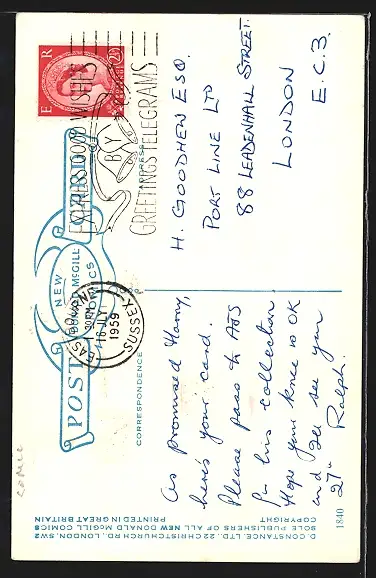 POST CARD
NEW
DONALD McGILL
COMICS
CORRESPONDENCE
ADDRESS
E R
2½D
EXPRESS YOUR WISHES
BY
GREETINGS TELEGRAMS
EASTBOURNE
30PM
16 JLY
1959
SUSSEX
As promised Harry,
here's your card.
Please pass to
for his collection
Hope your knee is OK
and I'll see you
27th Ralph.
H. GOODHEW ESQ.
PORT LINE LTD
88 LEADENHALL STREET.
LONDON
E.C.3.
D. CONSTANCE, LTD., 22 CHRISTCHURCH RD., LONDON, SW2
SOLE PUBLISHERS OF ALL NEW DONALD McGILL COMICS
COPYRIGHT PRINTED IN GREAT BRITAIN
1840
comic